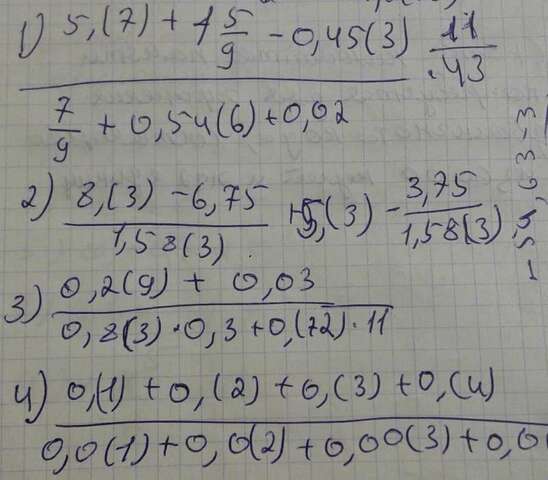 1) 5,(7) + 1 5/9 - 0,45(3) . 11/43
7/9 + 0,54(6) + 0,02
2) 8,(3) - 6,75 / 1,58(3) + 5,(3) - 3,75 / 1,58(3)
3) 0,2(9) + 0,03
0,8(3) · 0,3 + 0,(72) · 11
4) 0,(1) + 0,(2) + 0,(3) + 0,(4)
0,0(1) + 0,0(2) + 0,00(3) + 0,0